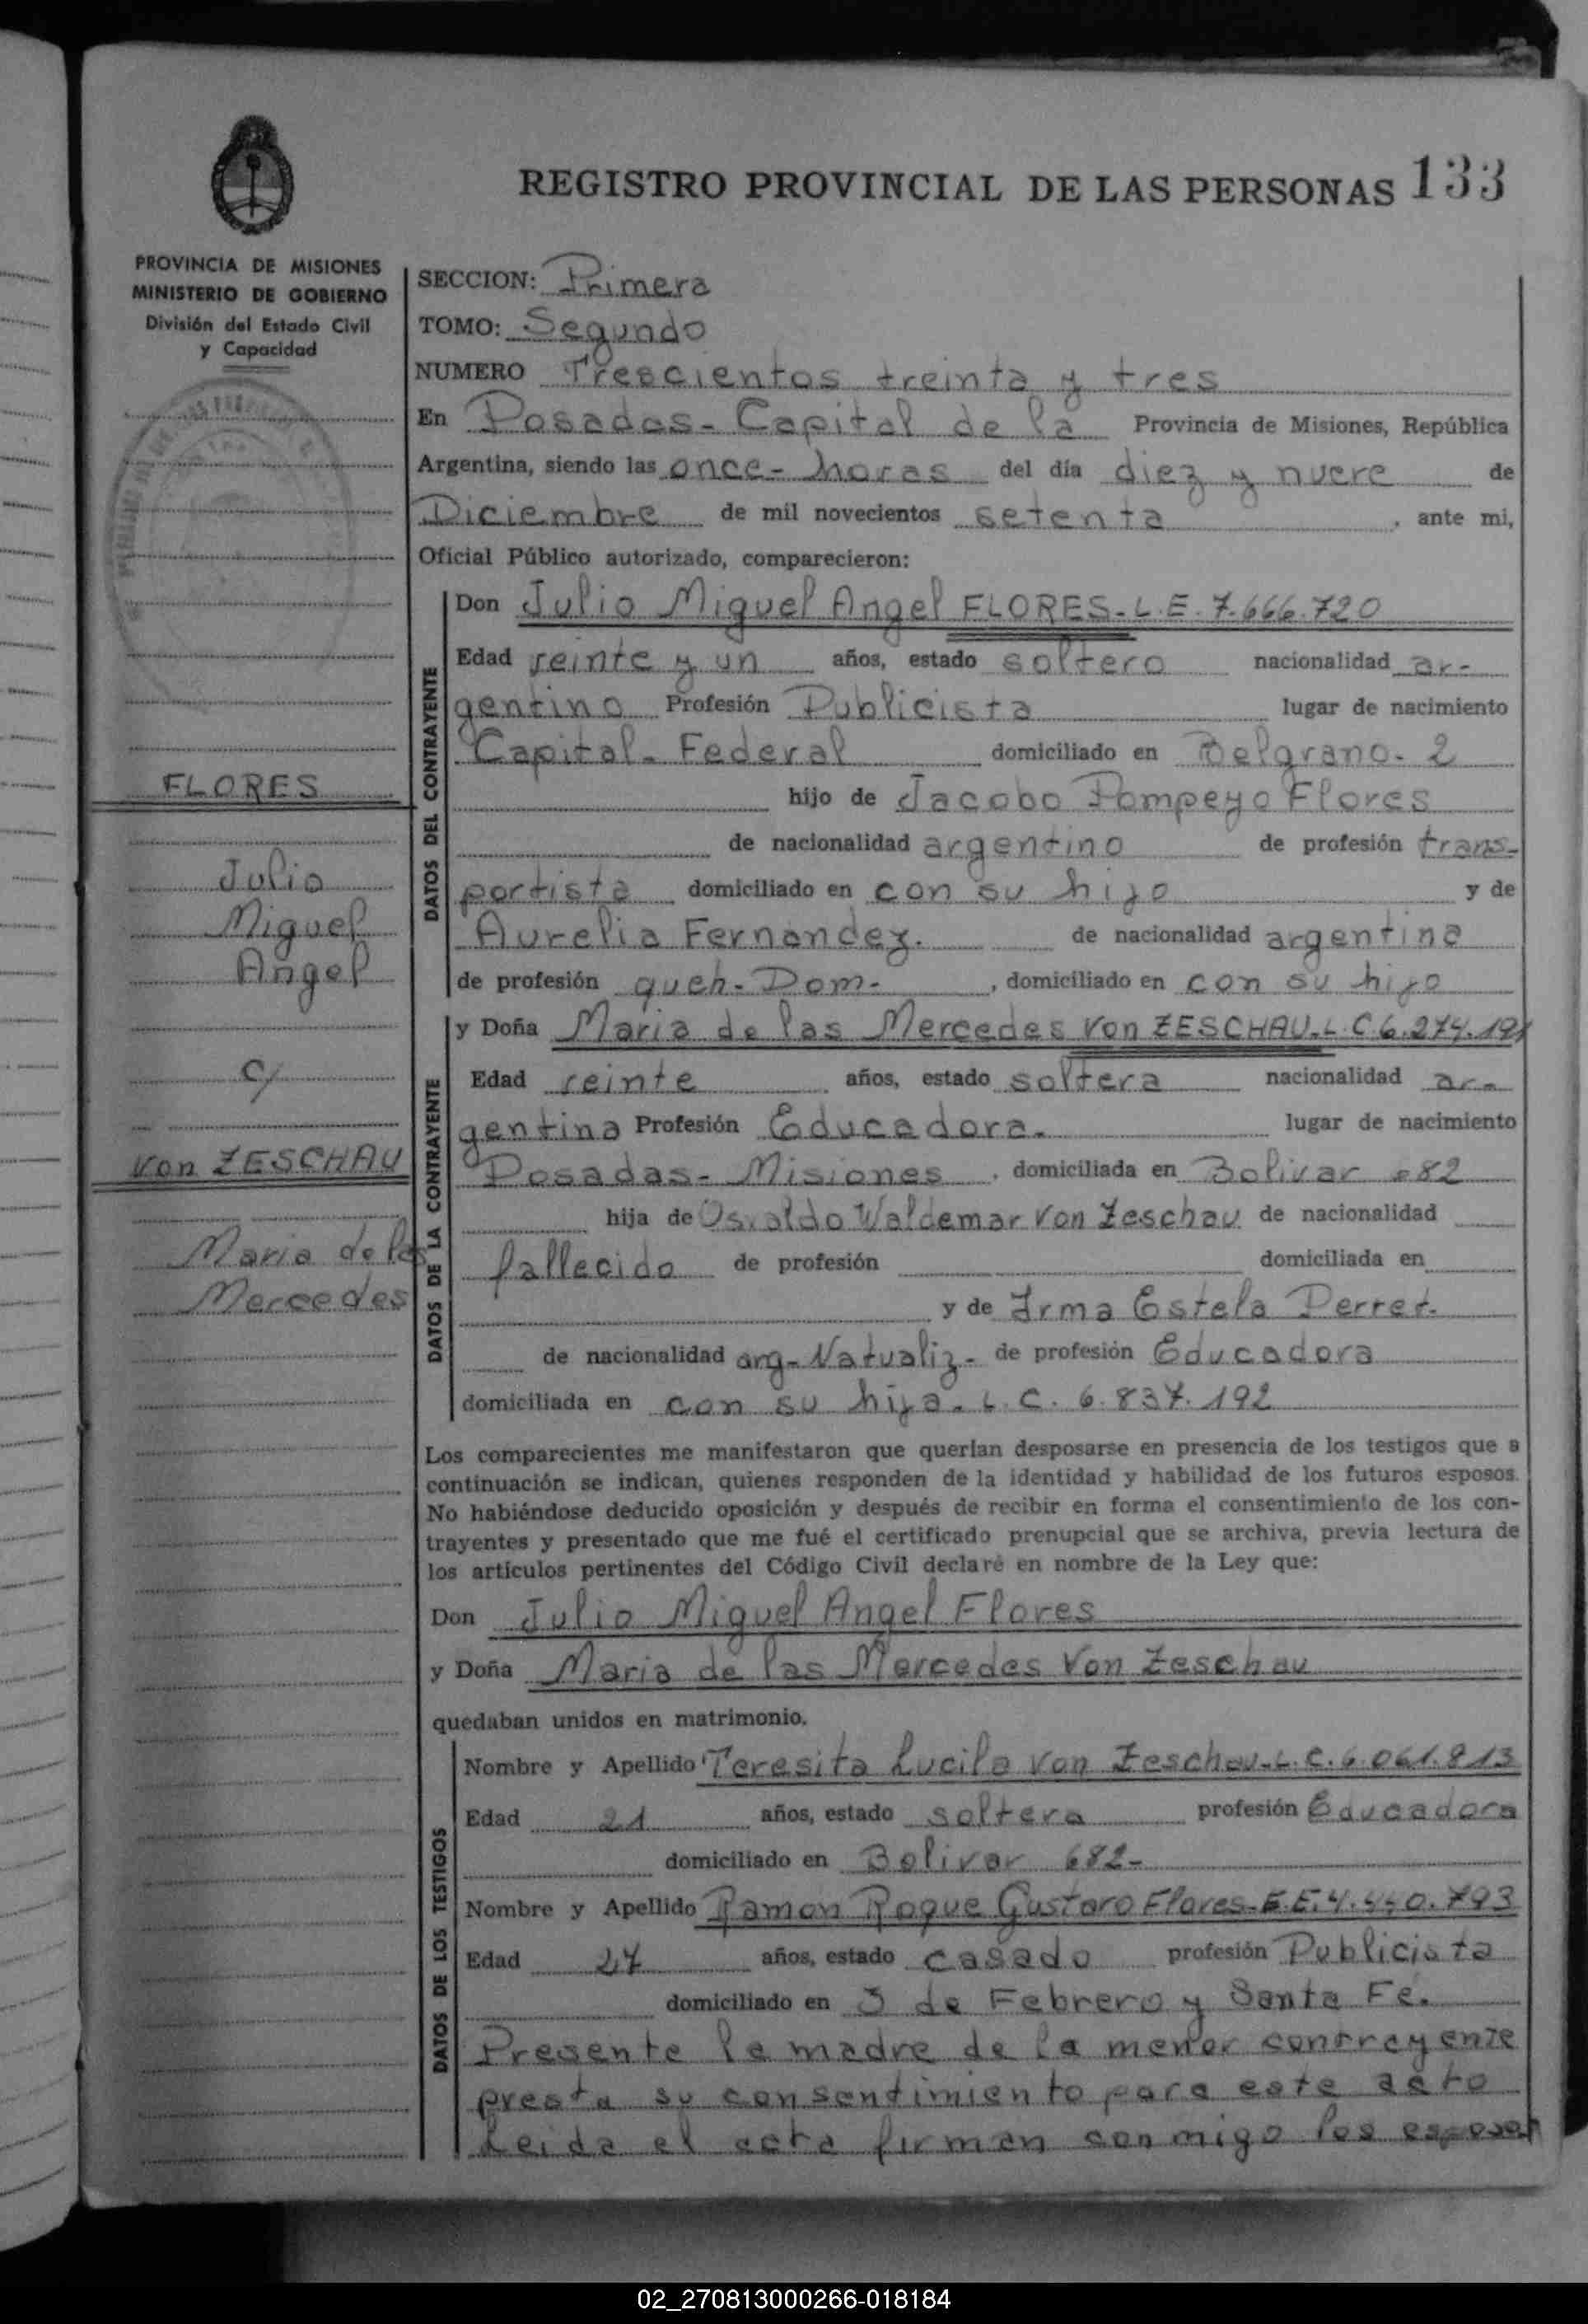 REGISTRO PROVINCIAL DE LAS PERSONAS 133
PROVINCIA DE MISIONES
MINISTERIO DE GOBIERNO
División del Estado Civil
y Capacidad
SECCION: Primera
TOMO: Segundo
NUMERO Trescientos treinta y tres
En Posadas - Capital de la Provincia de Misiones, República
Argentina, siendo las once - horas del día diez y nueve de
Diciembre de mil novecientos setenta, ante mi,
Oficial Público autorizado, comparecieron:
DATOS DEL CONTRAYENTE
Don Julio Miguel Angel FLORES - L.E. 7.666.720
Edad veinte y un años, estado soltero nacionalidad ar-
gentino Profesión Publicista lugar de nacimiento
Capital - Federal domiciliado en Belgrano - 2
hijo de Jacobo Pompeyo Flores
de nacionalidad argentino de profesión trans-
portista domiciliado en con su hijo y de
Aurelia Fernandez. de nacionalidad argentina
de profesión queh - Dom -, domiciliado en con su hijo
FLORES
Julio
Miguel
Angel
c/
von ZESCHAU
Maria de las
Mercedes
DATOS DE LA CONTRAYENTE
y Doña Maria de las Mercedes von ZESCHAU - L.C. 6.274.191
Edad veinte años, estado soltera nacionalidad ar-
gentina Profesión Educadora. lugar de nacimiento
Posadas - Misiones, domiciliada en Bolivar 682
hija de Osvaldo Waldemar von Zeschau de nacionalidad
fallecido de profesión domiciliada en
y de Irma Estela Perret.
de nacionalidad arg - Natualiz - de profesión Educadora
domiciliada en con su hija. L.C. 6.837.192
Los comparecientes me manifestaron que querían desposarse en presencia de los testigos que a
continuación se indican, quienes responden de la identidad y habilidad de los futuros esposos.
No habiéndose deducido oposición y después de recibir en forma el consentimiento de los con-
trayentes y presentado que me fué el certificado prenupcial que se archiva, previa lectura de
los artículos pertinentes del Código Civil declaré en nombre de la Ley que:
Don Julio Miguel Angel Flores
y Doña Maria de las Mercedes von Zeschau
quedaban unidos en matrimonio.
DATOS DE LOS TESTIGOS
Nombre y Apellido Teresita Lucila von Zeschau - L.C. 6.061.813
Edad 21 años, estado soltera profesión Educadora
domiciliado en Bolivar 682 -
Nombre y Apellido Ramon Roque Gustavo Flores - E.E. 4.440.793
Edad 27 años, estado casado profesión Publicista
domiciliado en 3 de Febrero y Santa Fé.
Presente la madre de la menor contrayente
presta su consentimiento para este acto
Leida el acta firman conmigo los esposos
02_270813000266-018184